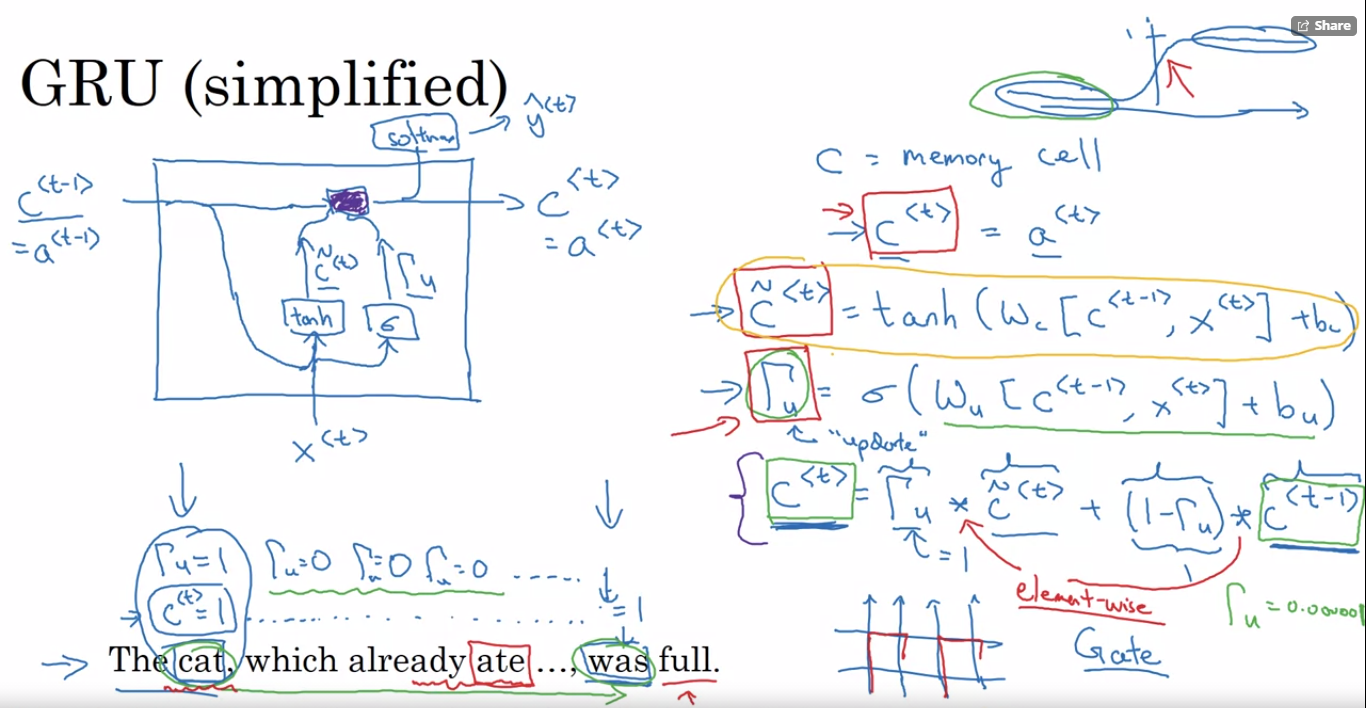 Share
GRU (simplified)
softmax → ŷ<t>
c<t-1>
= a<t-1>
c̃<t>
Γu
tanh
σ
c<t>
= a<t>
x<t>
c = memory cell
c<t> = a<t>
c̃<t> = tanh (Wc [c<t-1>, x<t>] + bc)
Γu = σ (Wu [c<t-1>, x<t>] + bu)
"update"
c<t> = Γu * c̃<t> + (1-Γu) * c<t-1>
= 1
element-wise
Γu = 0.000001
Gate
Γu=1 Γu=0 Γu=0 Γu=0 .....
c<t>=1 ............ = 1
The cat, which already ate ..., was full.